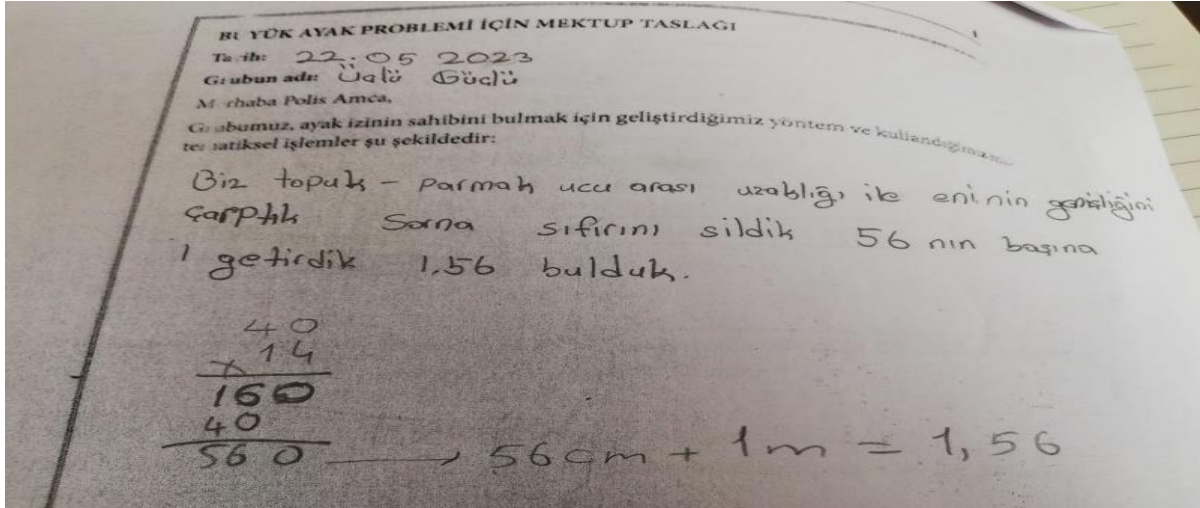 BÜYÜK AYAK PROBLEMİ İÇİN MEKTUP TASLAĞI
Tarih: 22.05 2023
Grubun adı: Üçlü Güçlü
Merhaba Polis Amca,
Grubumuz, ayak izinin sahibini bulmak için geliştirdiğimiz yöntem ve kullandığımız
matematiksel işlemler şu şekildedir:
Biz topuk - parmak ucu arası uzaklığı ile eninin genişliğini
çarptık Sorna sıfırını sildik 56 nın başına
1 getirdik 1.56 bulduk.
40
x 14
160
40
560 → 56cm + 1m = 1,56